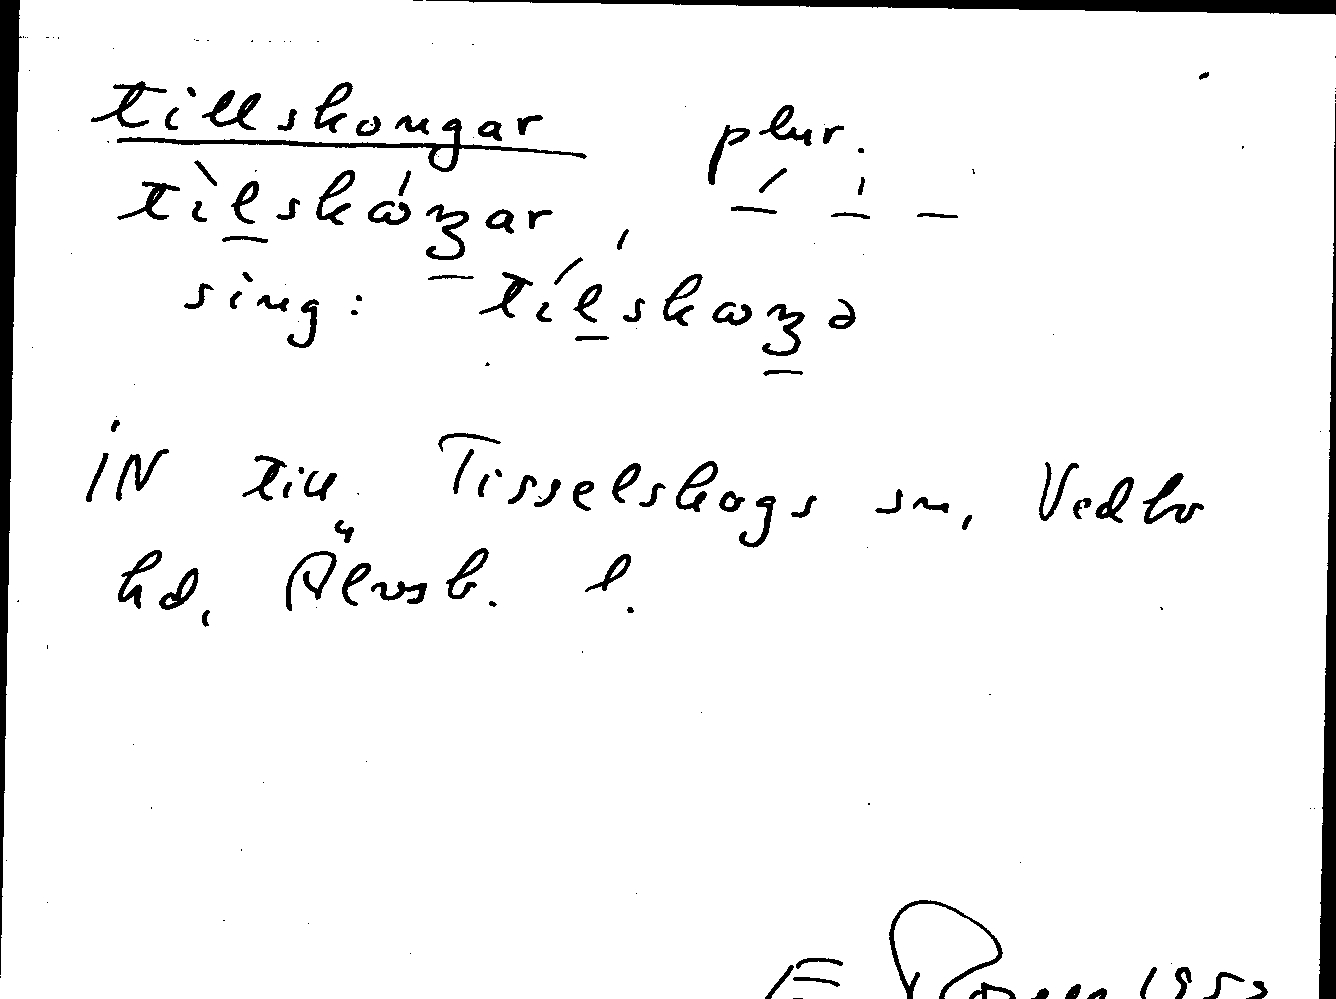 tillskongar plur.
tìlskωʒar,
sing: tílskωʒə
iN till Tisselskogs sn, Vedbo
hd, Älvsb. l.
E